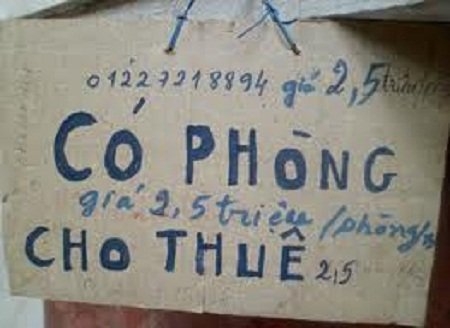 01227218894 giá 2,5 triệu/
CÓ PHÒNG
giá 2,5 triệu/phòng/
CHO THUÊ 2,5